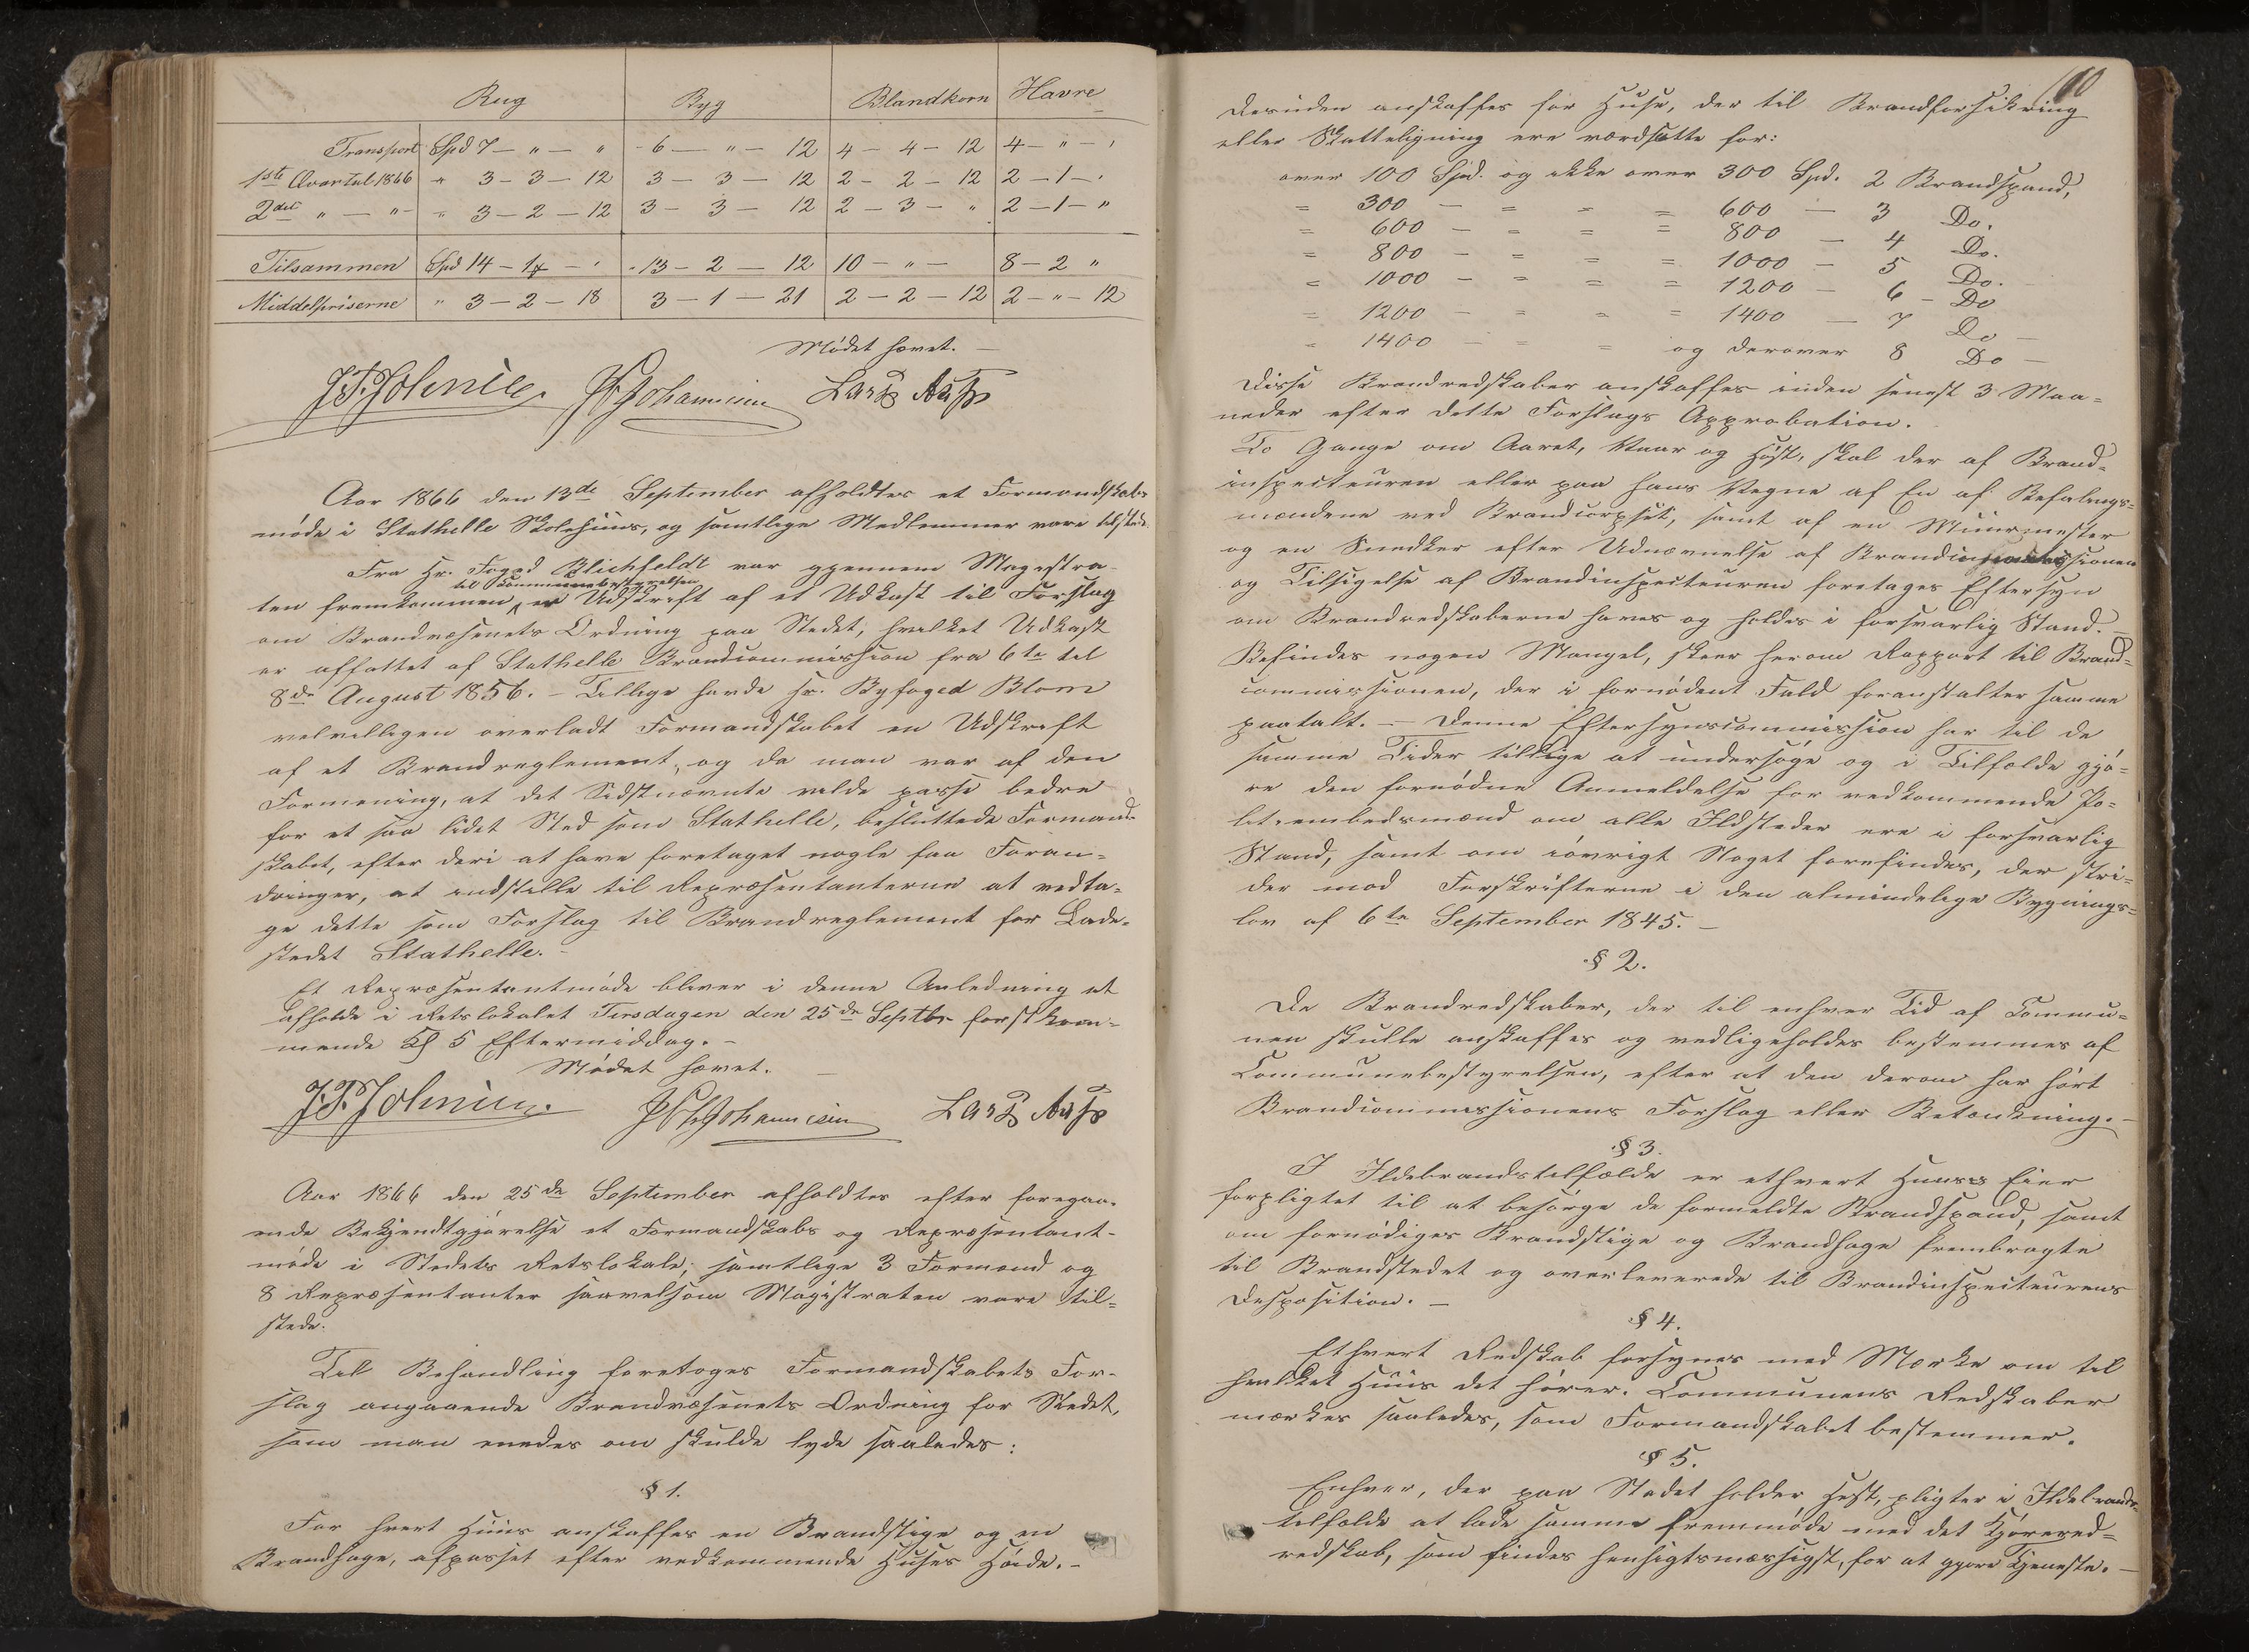 Rug Byg Blandkorn Havre
Transport Spd 7 - " - " - 6 - " - 12 4 - 4 - 12 4 - " - "
1ste Qvartal 1866 " 3 - 3 - 12 3 - 3 - 12 2 - 2 - 12 2 - 1 - "
2det " - " - " 3 - 2 - 12 3 - 3 - 12 2 - 3 - " 2 - 1 - "
Tilsammen Spd 14 - 1 - " - 13 - 2 - 12 10 - " - 8 - 2 "
Middelpriserne " 3 - 2 - 18 3 - 1 - 21 2 - 2 - 12 2 - " - 12
Mødet hævet. -
Aar 1866 den 13de September afholdtes et Formandskabs
møde i Stathelle Skolehuus, og samtlige Medlemmer vare tilstede.
Fra Hr. Foged Blichfeldt var gjennem Magistra-
til Communebestyrelsen
ten fremkommen en Udskrift af et Udkast til Forslag
om Brandvæsenets Ordning paa Stedet, hvilket Udkast
er affattet af Stathelle Brandcommission fra 6te til
8de August 1856. - Tillige havde Hr. Byfoged Blom
velvilligen overladt Formandskabet en Udskrift
af et Brandreglement, og da man var af den
Formening, at det Sidstnævnte vilde passe bedre
for et saa lidet Sted som Stathelle, besluttede Formand-
skabet, efter deri at have foretaget nogle faa Foran-
dringer, at indstille til Repræsentanterne at vedta-
ge dette som Forslag til Brandreglement for Lade-
stedet Stathelle. -
Et Repræsentantmøde bliver i denne Anledning at
afholde i Retslokalet Tirsdagen den 25de Septbr førstkom-
mende Kl 5 Eftermiddag. -
Mødet hævet. -
Aar 1866 den 25de September afholdtes efter foregaa-
ende Bekjendtgjørelse et Formandskabs og Repræsentant-
møde i Stedets Retslokale; samtlige 3 Formænd og
8 Repræsentanter saavelsom Magistraten vare til-
stede.
Til Behandling foretoges Formandskabets For-
slag angaaende Brandvæsenets Ordning for Stedet,
som man enedes om skulde lyde saaledes:
§ 1.
For hvert Huus anskaffes en Brandstige og en
Brandhage, afpasset efter vedkommende Huses Høide. -
100
Desuden anskaffes for Huse, der til Brandforsikring
eller Skatteligning ere værdsatte for:
over 100 Spd. og ikke over 300 Spd. 2 Brandspand,
= 300 - = = = 600 - 3 Do.
= 600 - = = = 800 - 4 Do.
= 800 - = = = 1000 - 5 Do.
= 1000 - = = = 1200 - 6 - Do
= 1200 - = = = 1400 - 7 Do -
= 1400 - = = og derover 8 Do -
Disse Brandredskaber anskaffes inden senest 3 Maa-
neder efter dette Forslags Approbation.
To Gange om Aaret, Vaar og Høst, skal der af Brand-
inspecteuren eller paa hans Vegne af En af Befalings-
mændene ved Brandcorpset, samt af en Muurmester
og en Snedker efter Udnævnelse af Brandcommissionen
og Tilsigelse af Brandinspecteuren foretages Eftersyn
om Brandredskaberne haves og holdes i forsvarlig Stand. -
Befindes nogen Mangel, skeer herom Rapport til Brand-
commissionen, der i fornødent Fald foranstalter samme
paatalt. - Denne Eftersynscommission har til de
samme Tider tillige at undersøge og i Tilfælde gjø-
re den fornødne Anmeldelse for vedkommende Po-
litiembedsmænd om alle Ildsteder ere i forsvarlig
Stand, samt om iøvrigt Noget forefindes, der stri-
der mod Forskrifterne i den almindelige Bygnings-
lov af 6te September 1845. -
§ 2.
De Brandredskaber, der til enhver Tid af Commu-
nen skulle anskaffes og vedligeholdes bestemmes af
Communebestyrelsen, efter at den derom har hørt
Brandcommissionens Forslag eller Betænkning. -
§ 3.
I Ildebrandstilfælde er ethvert Huuses Eier
forpligtet til at besørge de formeldte Brandspand, samt
om fornødiges Brandstige og Brandhage frembragte
til Brandstedet og overleverede til Brandinspecteurens
Desposition. -
§ 4.
Ethvert Redskab forsynes med Mærke om til
hvilket Huus det hører. Communens Redskaber
mærkes saaledes, som Formandskabet bestemmer.
§ 5.
Enhver, der paa Stedet holder Hest, pligter i Ildebrands-
tilfælde at lade samme fremmøde med det Kjørered-
redskab, som findes hensigtsmæssigst, for at gjøre Tjeneste. -